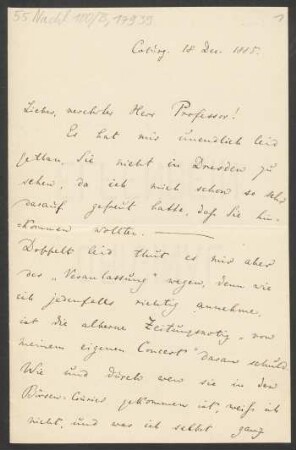 55 Nachl 100/B, 17939
1
Coburg. 18 Dec. 1885.
Lieber, verehrter Herr Professor!
Es hat mir unendlich leid
gethan, Sie nicht in Dresden zu
sehen, da ich mich schon so sehr
darauf gefreut hatte, daß Sie hin-
kommen wollten.
Doppelt leid thut es mir aber
der „Veranlassung" wegen, denn wie
ich jedenfalls richtig annehme,
ist die alberne Zeitungsnotiz „von
meinem eigenen Concert" daran schuld.
Wie und durch wen sie in den
Börsen-Courier gekommen ist, weiß ich
nicht, und was ich selbst ganz